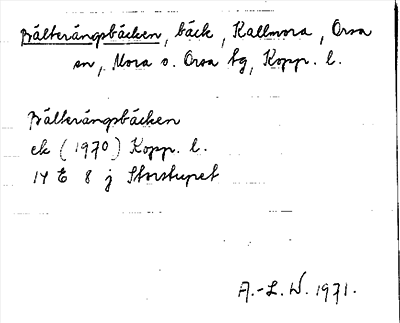 Bälterängsbäcken, bäck, Kallmora, Orsa
sn, Mora o. Orsa tg, Kopp. l.
Bälterängsbäcken
ek (1970) Kopp. l.
14 E 8 j Storstupet
A.-L. W. 1971.